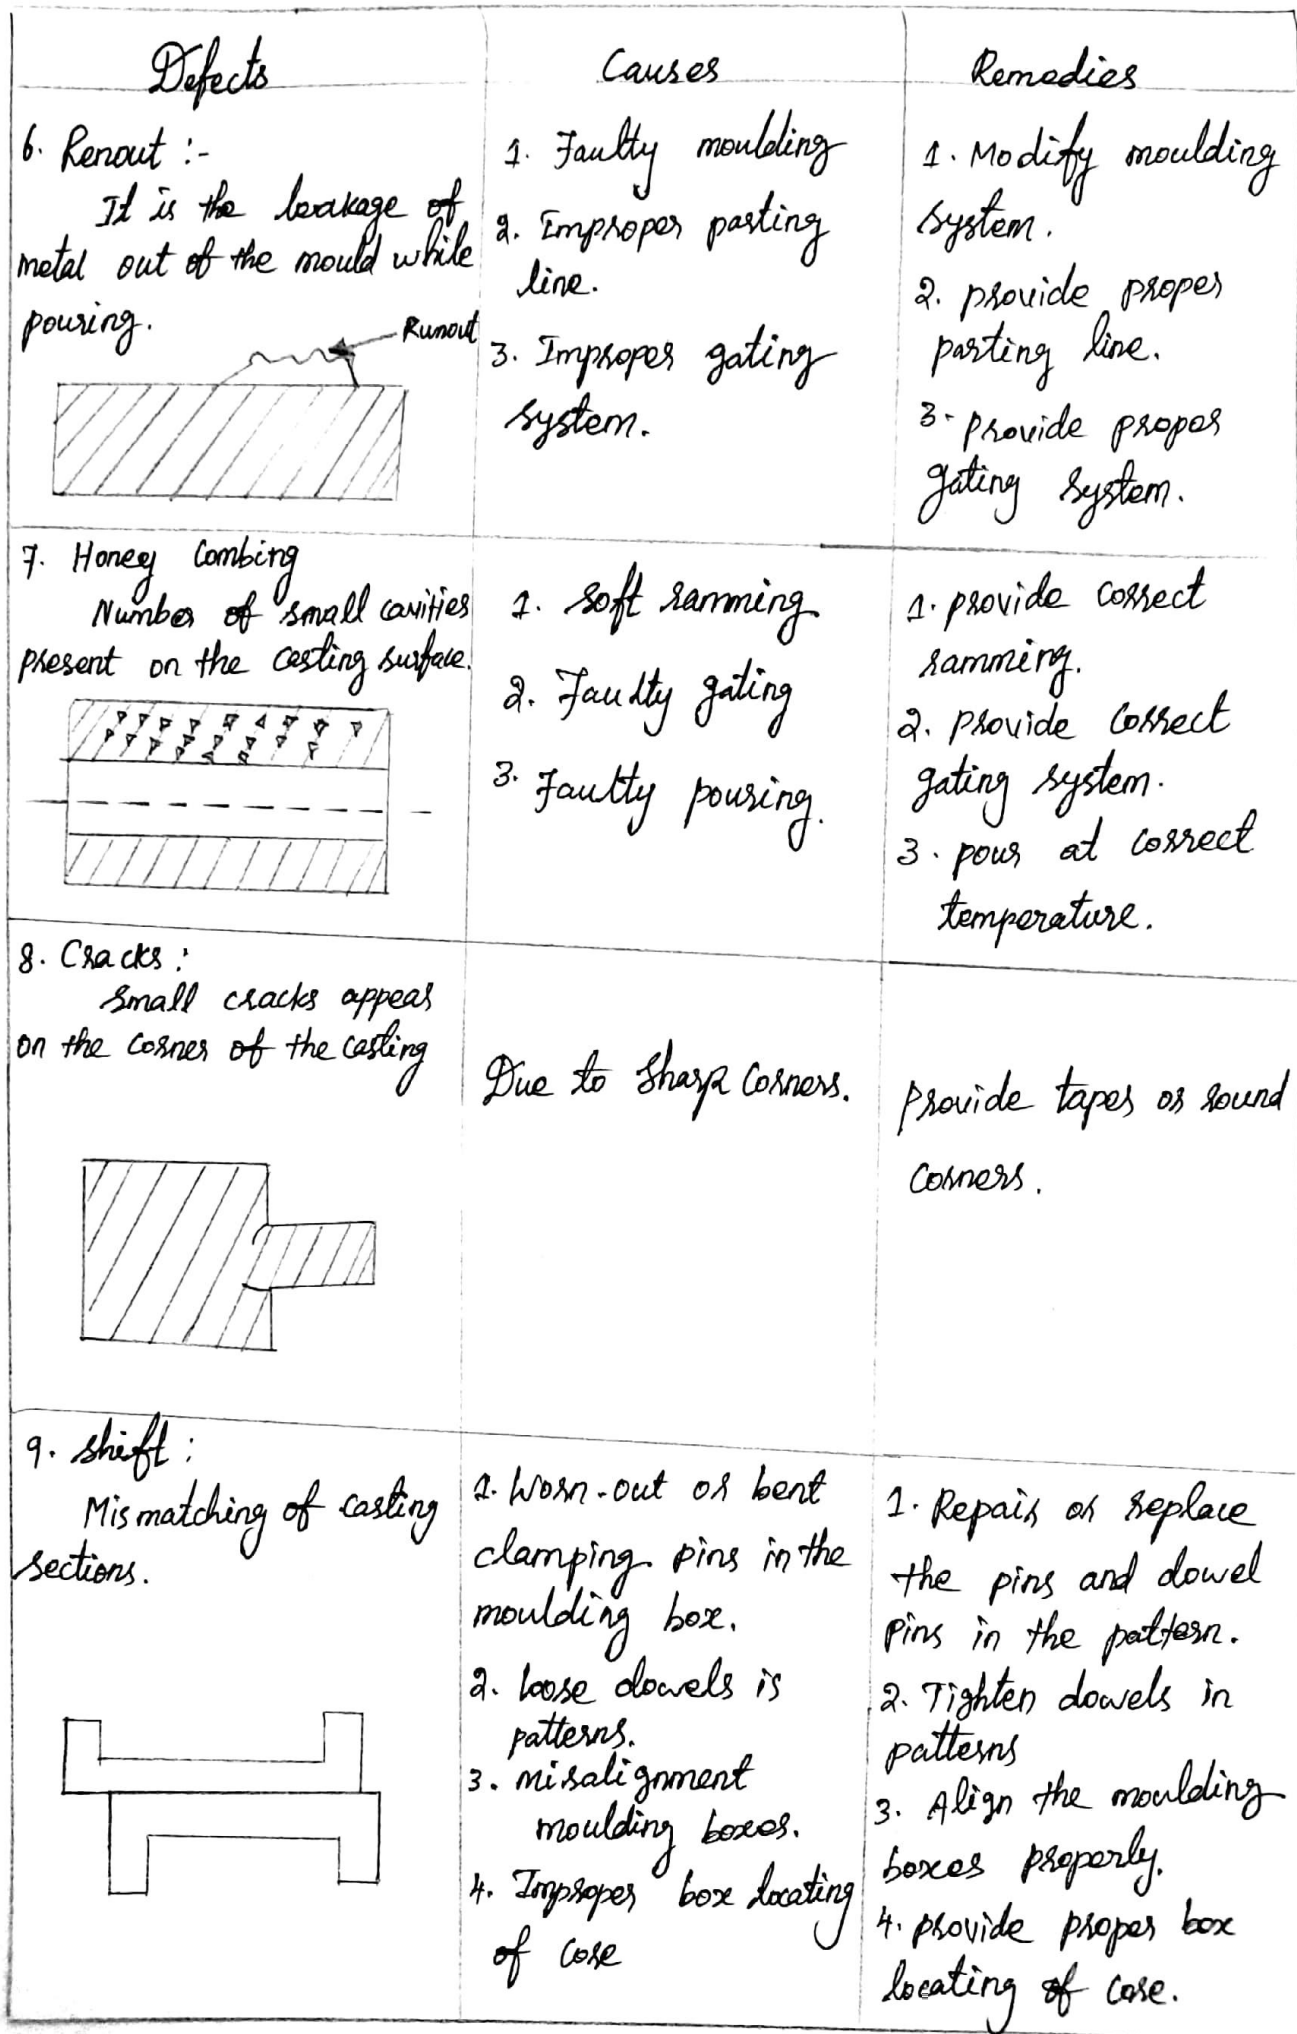 Defects
Causes
Remedies
6. Renout :-
It is the leakage of
metal out of the mould while
pouring.
Runout
1. Faulty moulding
2. Improper parting
line.
3. Improper gating
system.
1. Modify moulding
system.
2. provide proper
parting line.
3. provide proper
gating system.
7. Honey Combing
Number of small cavities
present on the casting surface.
1. Soft ramming
2. Faulty gating
3. Faulty pouring.
1. provide correct
ramming.
2. provide correct
gating system.
3. pour at correct
temperature.
8. Cracks :
Small cracks appear
on the corner of the casting
Due to sharp corners.
provide taper or round
corners.
9. shift :
Mismatching of casting
sections.
1. Worn-out or bent
clamping pins in the
moulding box.
2. loose dowels is
patterns.
3. misalignment
moulding boxes.
4. Improper box locating
of core
1. Repair or replace
the pins and dowel
pins in the pattern.
2. Tighten dowels in
patterns
3. Align the moulding
boxes properly.
4. provide proper box
locating of core.